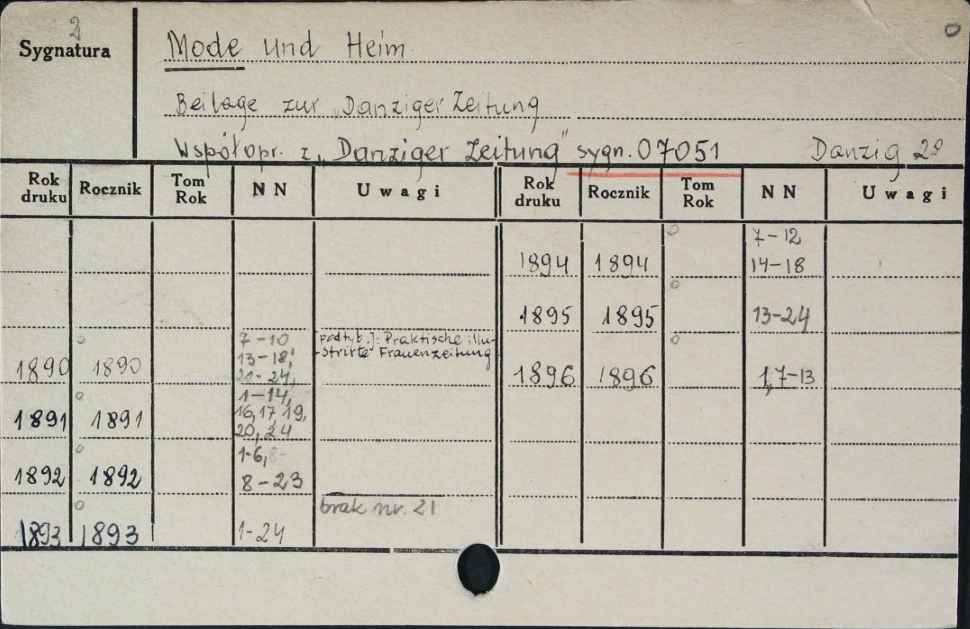 2
Sygnatura
Mode und Heim
Beilage zur "Danziger Zeitung
Współopr. z "Danziger Zeitung" sygn. 07051 Danzig 2°
Rok druku Rocznik Tom Rok NN Uwagi Rok druku Rocznik Tom Rok NN Uwagi
1890 1890 7-10 13-18, 21-24, podtyt.]: Praktische illu-strirte Frauenzeitung
1891 1891 1-14, 16,17,19, 20,24
1892 1892 1-6, 8-23
1893 1893 1-24 brak nr. 21
1894 1894 7-12 14-18
1895 1895 13-24
1896 1896 1,7-13